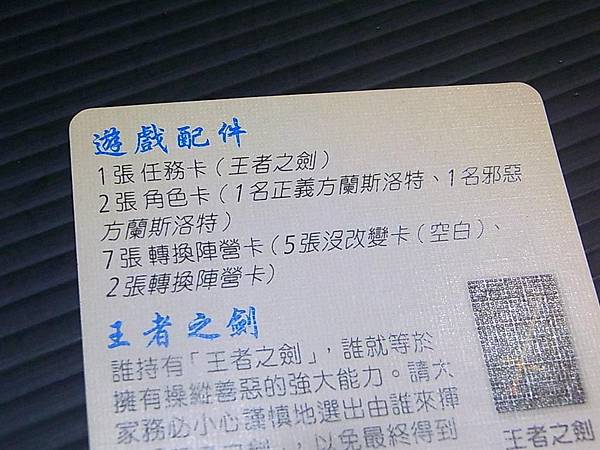 遊戲配件
1張 任務卡（王者之劍）
2張 角色卡（1名正義方蘭斯洛特、1名邪惡
方蘭斯洛特）
7張 轉換陣營卡（5張沒改變卡（空白）、
2張轉換陣營卡）
王者之劍
誰持有「王者之劍」，誰就等於
擁有操縱善惡的強大能力。請大
家務必小心謹慎地選出由誰來揮
」，以免最終得到
王者之劍